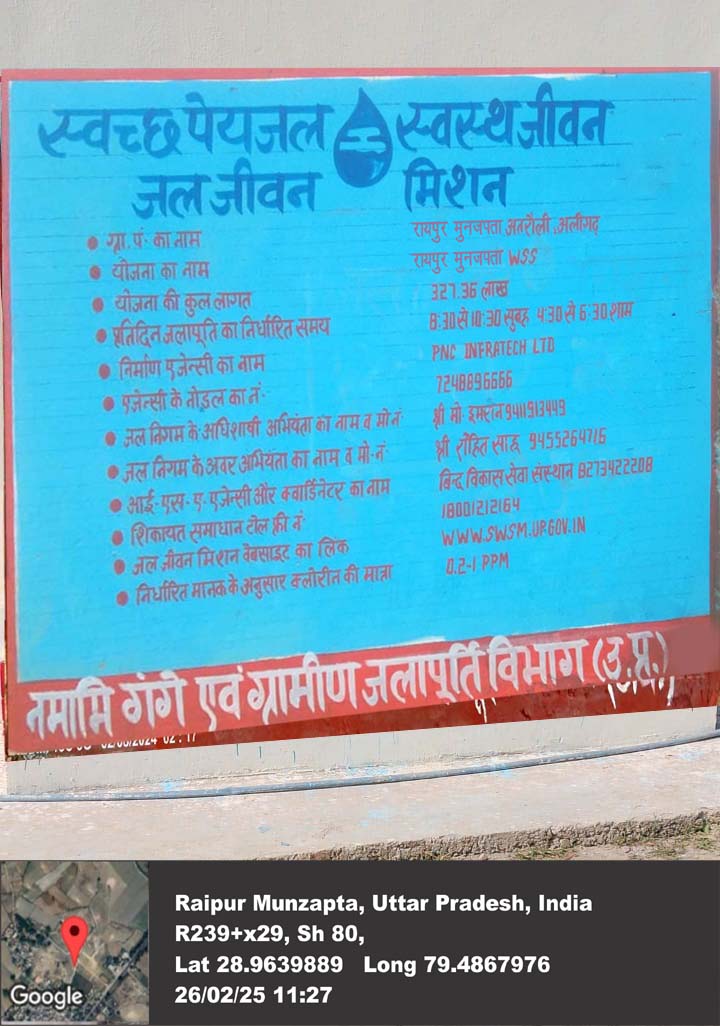 स्वच्छ पेयजल स्वस्थ जीवन
जल जीवन मिशन
• ग्रा. पं. का नाम रायपुर मुनजपता अतरौली, अलीगढ़
• योजना का नाम रायपुर मुनजपता WSS
• योजना की कुल लागत 327.36 लाख
• प्रतिदिन जलापूर्ति का निर्धारित समय 8:30 से 10:30 सुबह 4:30 से 6:30 शाम
• निर्माण एजेन्सी का नाम PNC INFRATECH LTD
• एजेन्सी के नोडल का नं. 7248896666
• जल निगम के अधिशाषी अभियंता का नाम व मो.नं. श्री मो. इमरान 9411913449
• जल निगम के अवर अभियंता का नाम व मो.नं. श्री रोहित साहू 9455264716
• आई. एस. ए. एजेन्सी और क्वार्डिनेटर का नाम बिन्द विकास सेवा संस्थान 8273422208
• शिकायत समाधान टोल फ्री नं. 18001212164
• जल जीवन मिशन वेबसाइट का लिंक WWW.SWSM.UP.GOV.IN
• निर्धारित मानक के अनुसार क्लोरीन की मात्रा 0.2-1 PPM
नमामि गंगे एवं ग्रामीण जलापूर्ति विभाग (उ.प्र.)
02/08/2024 02:17
Raipur Munzapta, Uttar Pradesh, India
R239+x29, Sh 80,
Lat 28.9639889 Long 79.4867976
26/02/25 11:27
Google